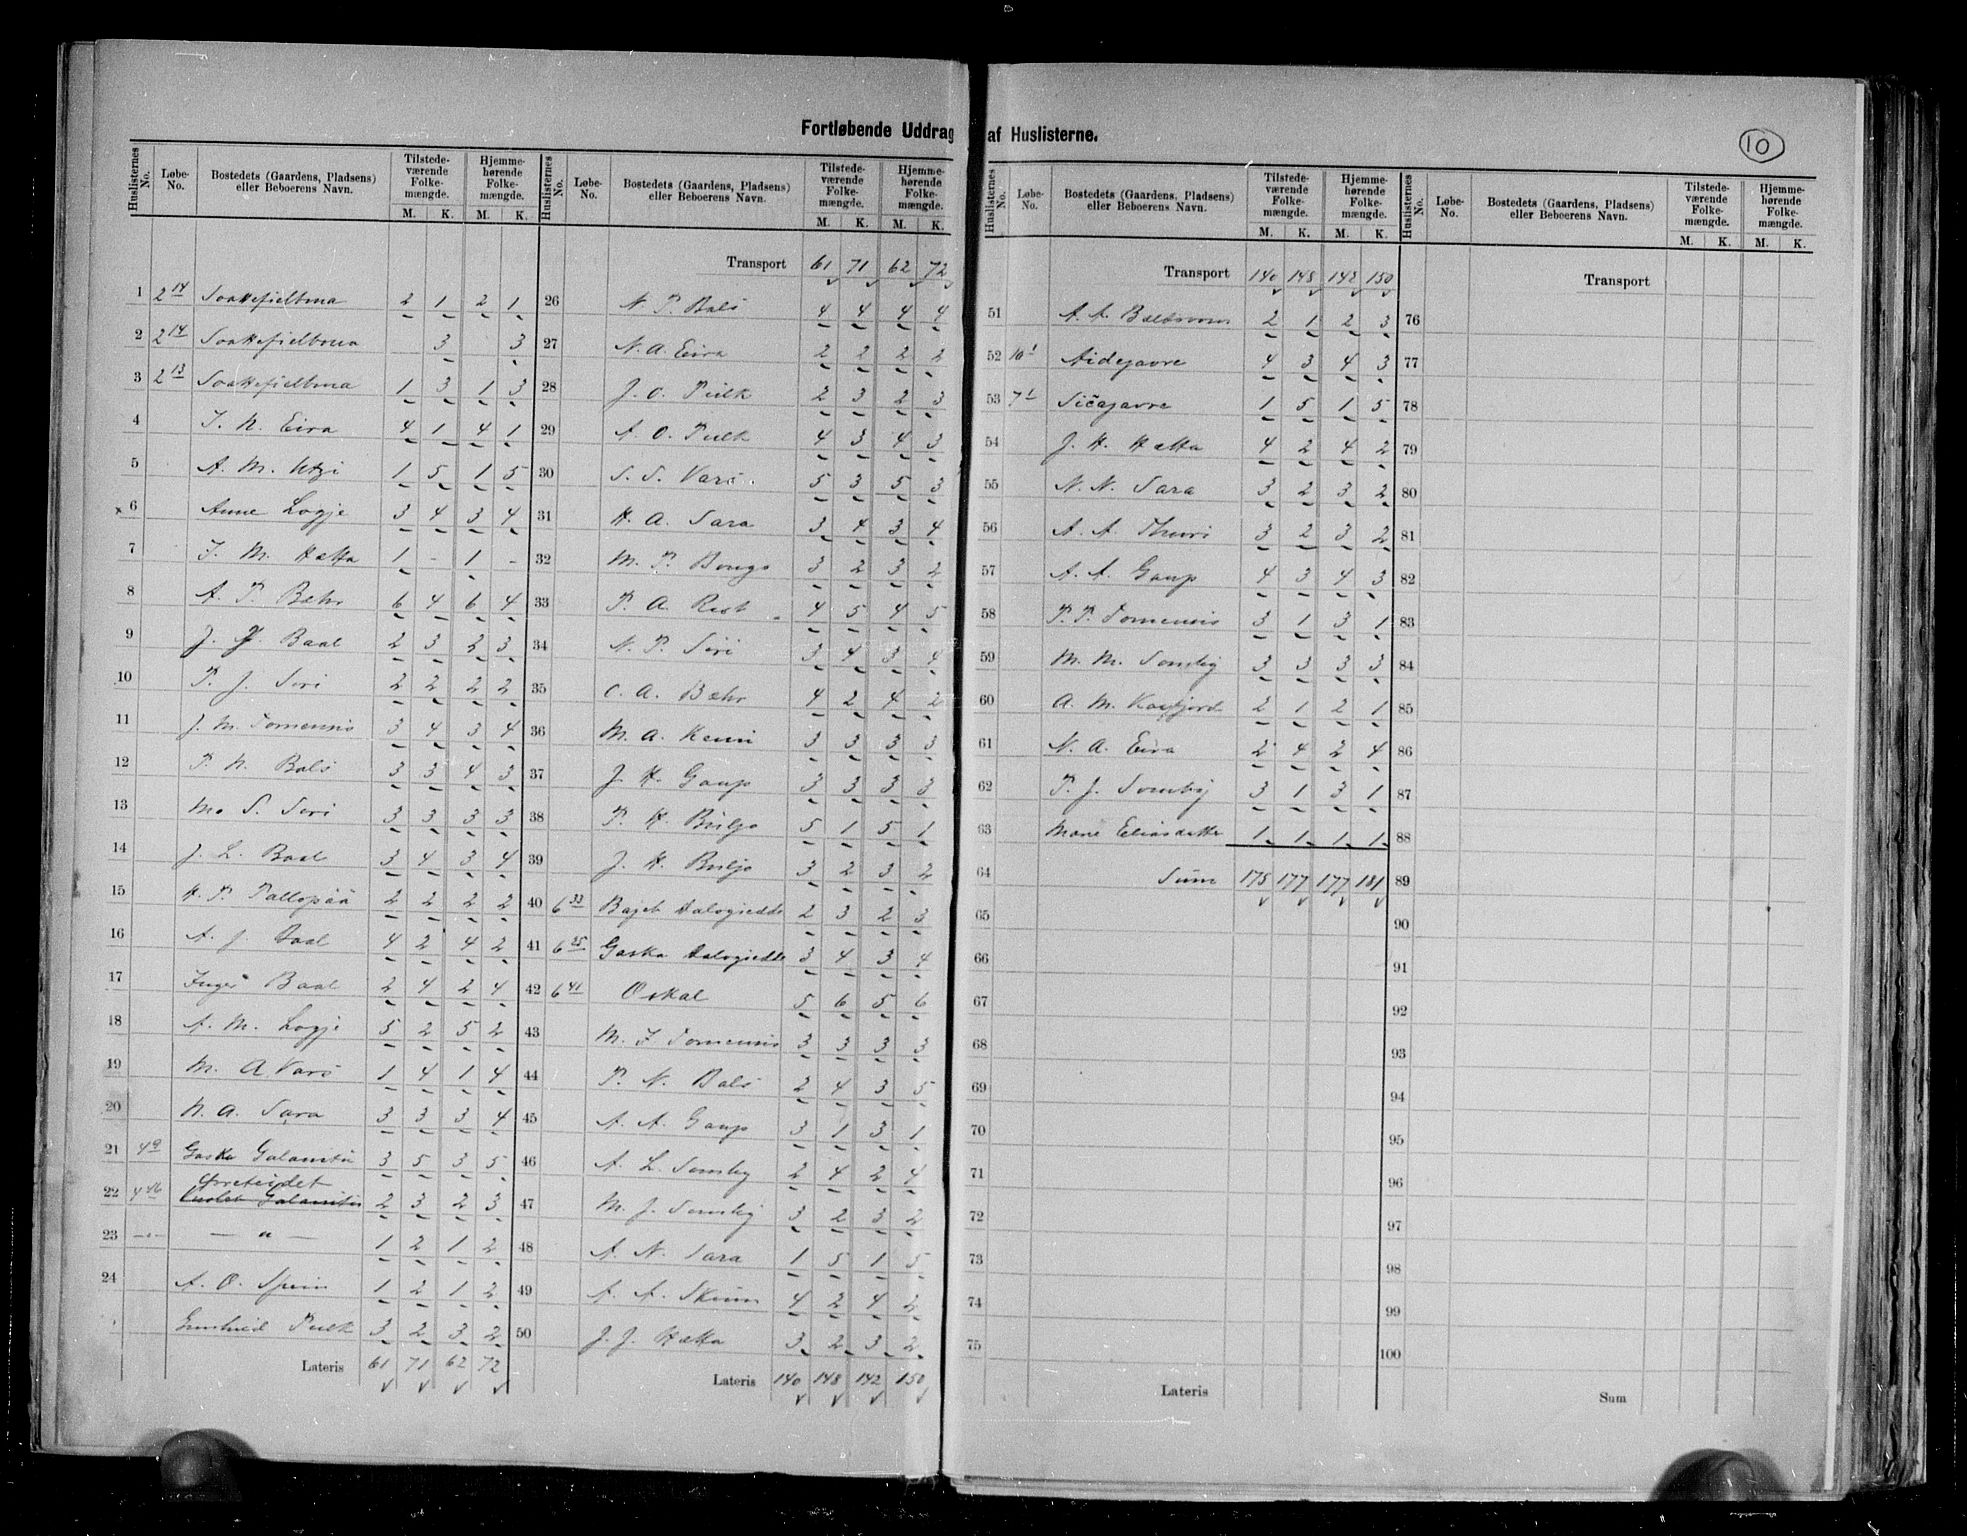 Fortløbende Uddrag af Huslisterne.
10
Huslisternes No. Løbe-No. Bostedets (Gaardens, Pladsens) eller Beboerens Navn. Tilstedeværende Folkemængde. M. K. Hjemmehørende Folkemængde. M. K.
1 2 14 Soattefieltma 2 1 2 1
2 2 14 Soattefieltma 3 3
3 2 13 Soattefieltma 1 3 1 3
4 J. N. Eira 4 1 4 1
5 A. M. Utzi 1 5 1 5
6 Anne Logje 3 4 3 4
7 J. M. Hætta 1 - 1 -
8 A. P. Bæhr 6 4 6 4
9 J. Baal 2 3 2 3
10 P. J. Siri 2 2 2 2
11 J. M. Tornensis 3 4 3 4
12 P. N. Bals 3 3 4 3
13 M. S. Siri 3 3 3 3
14 J. L. Baal 3 4 3 4
15 H. P. Pallopää 2 2 2 2
16 A. J. Baal 4 2 4 2
17 Inger Baal 2 4 2 4
18 A. M. Logje 5 2 5 2
19 M. A. Vars 1 4 1 4
20 N. A. Sara 3 3 3 4
21 4 9 Gaska Galanito 3 5 3 5
Örreteidet
22 4 46 Galanito 2 3 2 3
23 — " — — " — 1 2 1 2
24 A. O. Spein 1 2 1 2
Gunhild Pulk 3 2 3 2
Lateris 61 71 62 72
Huslisternes No. Løbe-No. Bostedets (Gaardens, Pladsens) eller Beboerens Navn. Tilstedeværende Folkemængde. M. K. Hjemmehørende Folkemængde. M. K.
Transport 61 71 62 72
26 N. P. Bals 4 4 4 4
27 N. A. Eira 2 2 2 2
28 J. O. Pulk 2 3 2 3
29 A. O. Pulk 4 3 4 3
30 S. S. Vars. 5 3 5 3
31 H. A. Sara 3 4 3 4
32 M. P. Bongo 3 2 3 2
33 P. A. Rist 4 5 4 5
34 N. P. Siri 3 4 3 4
35 O. A. Bæhr 4 2 4 2
36 M. A. Kemi 3 3 3 3
37 J. H. Gaup 3 3 3 3
38 P. H. Buljo 5 1 5 1
39 J. H. Buljo 3 2 3 2
40 6 33 Bajet Halogiedde 2 3 2 3
41 6 25 Gaska Halogiedde 3 4 3 4
42 6 41 Oskal 5 6 5 6
43 M. J. Tornensis 3 3 3 3
44 P. N. Bals 2 4 3 5
45 A. A. Gaup 3 1 3 1
46 A. L. Somby 2 4 2 4
47 M. J. Somby 3 2 3 2
48 A. N. Sara 1 5 1 5
49 A. A. Skum 4 2 4 2
50 J. J. Hætta 3 2 3 2
Lateris 140 148 142 150
Huslisternes No. Løbe-No. Bostedets (Gaardens, Pladsens) eller Beboerens Navn. Tilstedeværende Folkemængde. M. K. Hjemmehørende Folkemængde. M. K.
Transport 140 148 142 150
51 A. A. 2 1 2 3
52 10 1 Aidejavre 4 3 4 3
53 7 1 Sičajavre 1 5 1 5
54 J. H. Hætta 4 2 4 2
55 N. N. Sara 3 2 3 2
56 A. A. Thuri 3 2 3 2
57 A. A. Gaup 4 3 4 3
58 P. P. Tornensis 3 1 3 1
59 M. M. Somby 3 3 3 3
60 A. M. Kaifjord 2 1 2 1
61 N. A. Eira 2 4 2 4
62 P. J. Somby 3 1 3 1
63 Marie Eliasdatter 1 1 1 1
64 Sum 175 177 177 181
65
66
67
68
69
70
71
72
73
74
75
Lateris
Huslisternes No. Løbe-No. Bostedets (Gaardens, Pladsens) eller Beboerens Navn. Tilstedeværende Folkemængde. M. K. Hjemmehørende Folkemængde. M. K.
Transport
76
77
78
79
80
81
82
83
84
85
86
87
88
89
90
91
92
93
94
95
96
97
98
99
100
Sum